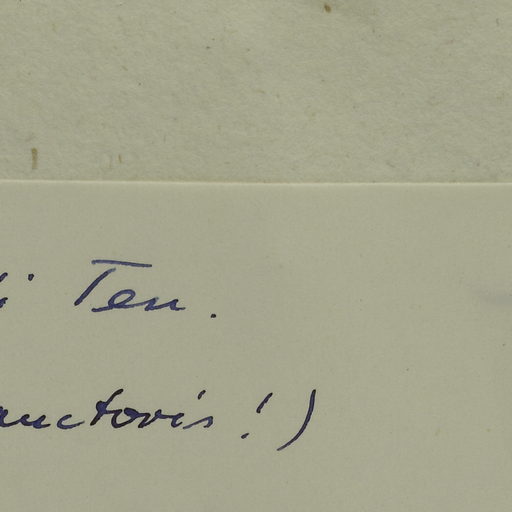 i Ten.
auctoris!)